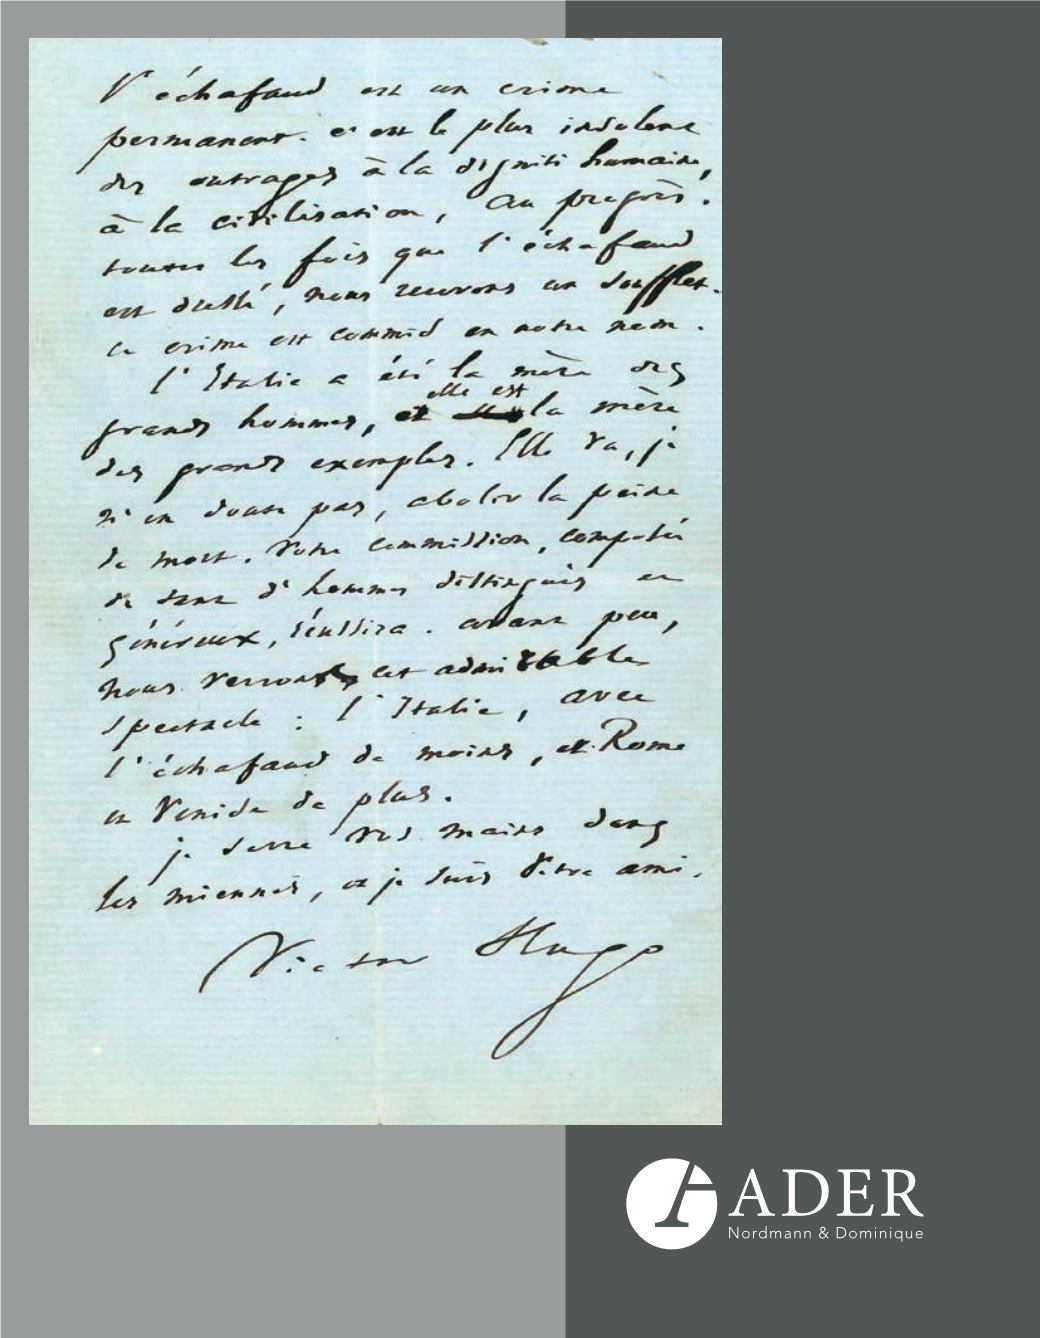 l'échafaud est un crime
permanent. c'est le plus insolent
des outrages à la dignité humaine,
à la civilisation, au progrès.
toutes les fois que l'échafaud
est dressé, nous recevons un soufflet.
ce crime est commis en notre nom.
l'Italie a été la mère des
grands hommes, et elle est la mère
des grands exemples. Elle va, je
n'en doute pas, abolir la peine
de mort. Votre commission, composée
de tant d'hommes distingués et
généreux, réussira. avant peu,
nous verrons cet admirable
spectacle : l'Italie, avec
l'échafaud de moins, et Rome
et Venise de plus.
je serre vos mains dans
les miennes, et je suis votre ami.
Victor Hugo
ADER
Nordmann & Dominique